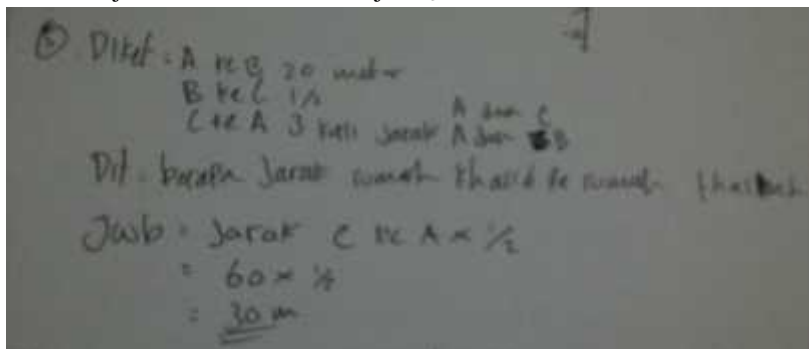 Diket : A ke B 20 meter
B ke C 1/2
A dan C
C ke A 3 kali jarak A dan B
Dit : berapa jarak rumah Khalid ke rumah
Jwb : Jarak C ke A × 1/2
= 60 × 1/2
= 30 m